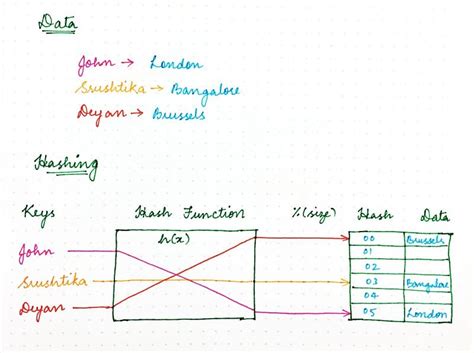 Data
John → London
Srushtika → Bangalore
Deyan → Brussels
Hashing
Keys Hash Function %(size) Hash Data
h(x)
John
Srushtika
Deyan
00 Brussels
01
02
03 Bangalore
04
05 London